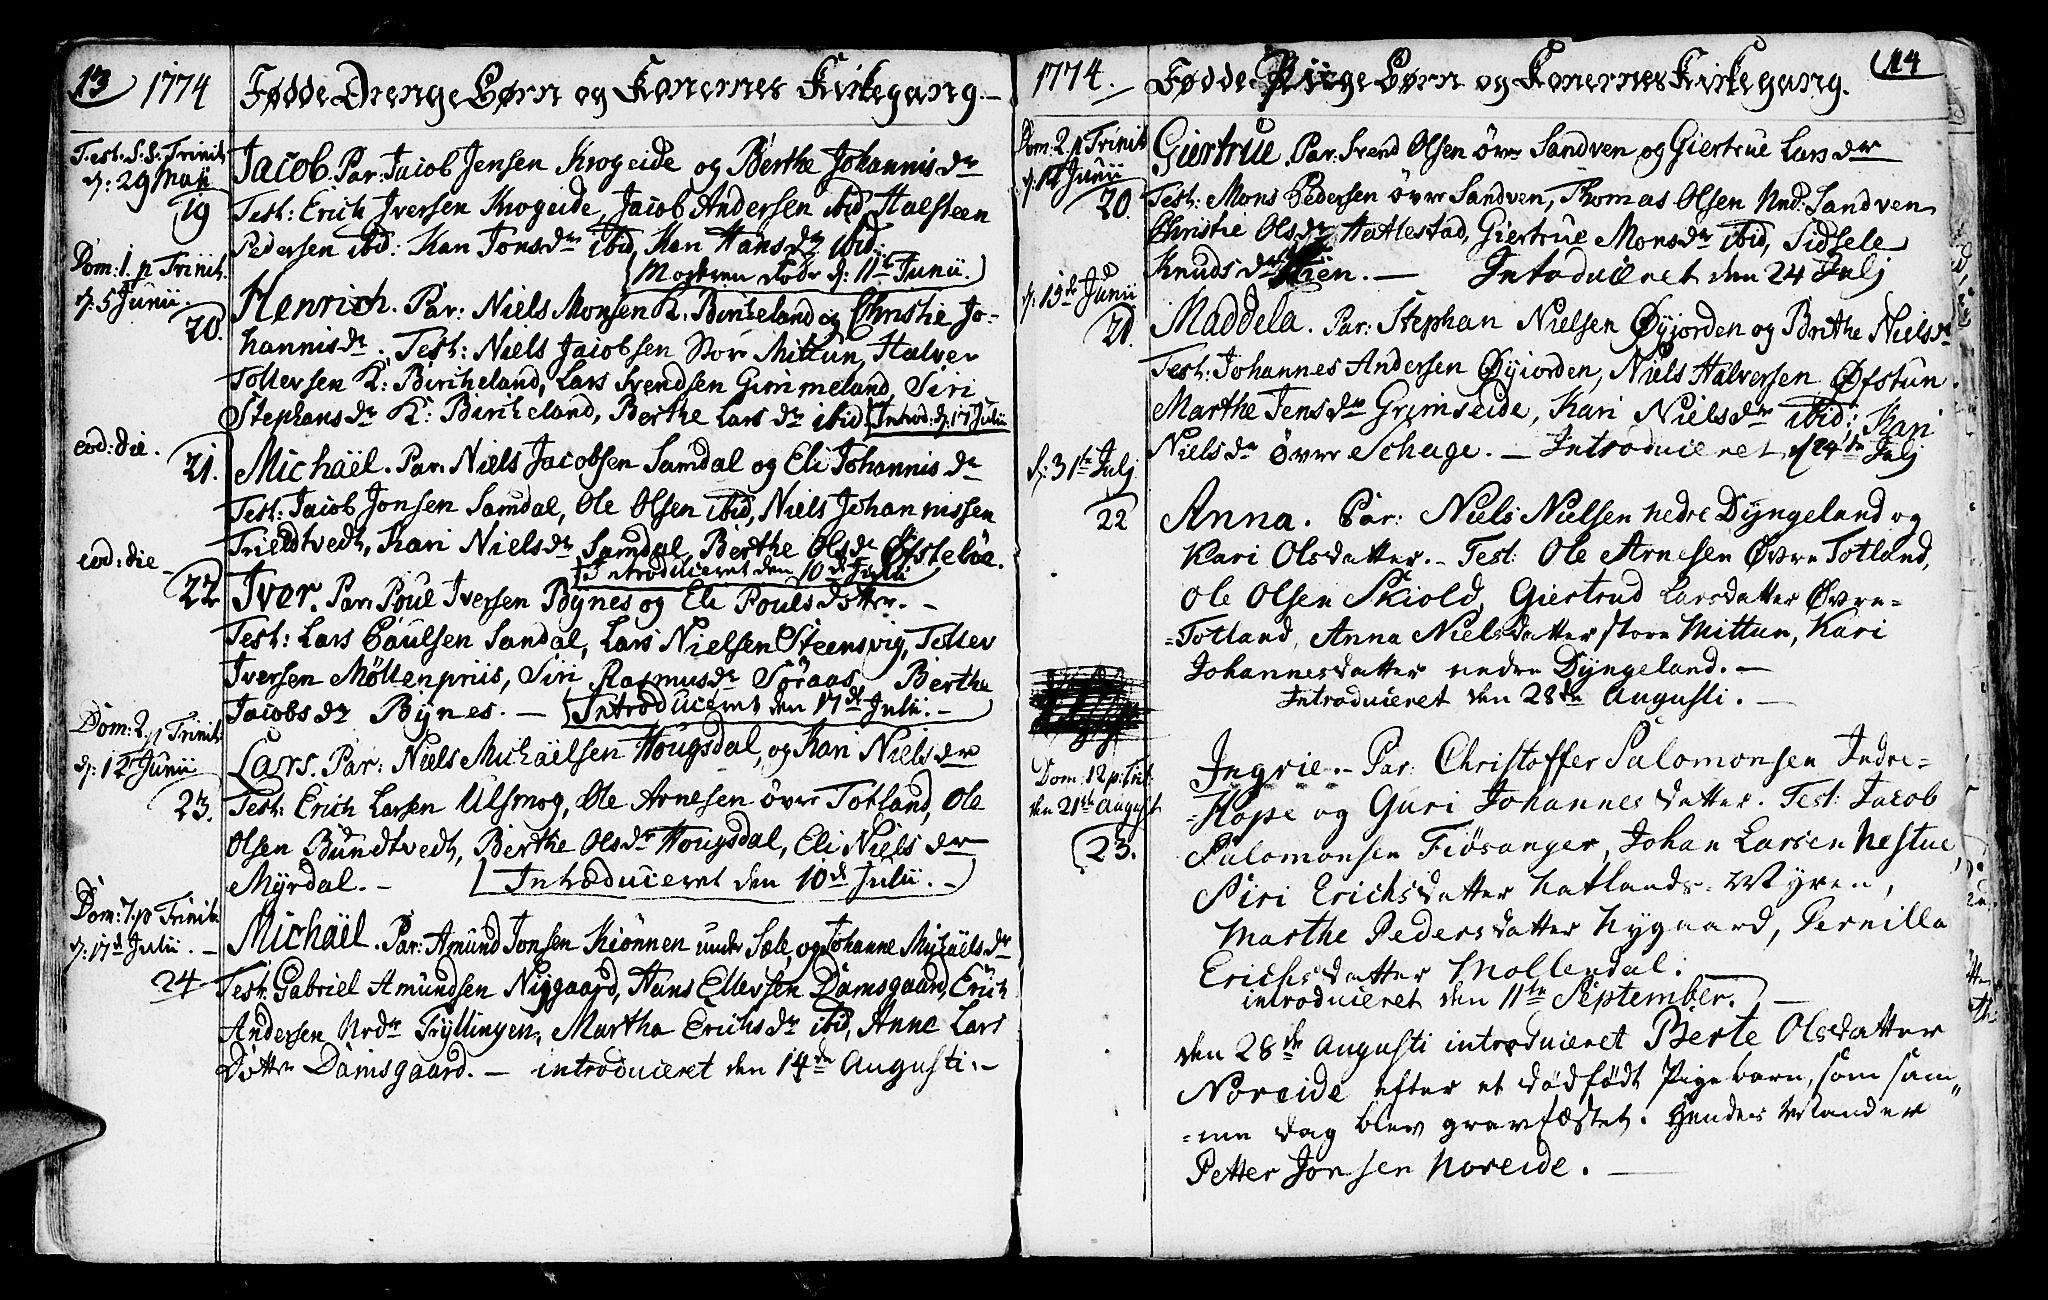 13 1774 Fødde Drenge Børn og Konernes Kirkegang.
Fest: S.S. Trinit:
d: 29 Maji
19
Jacob. Par: Jacob Jensen Krogeide og Berthe Johannis dr
Test: Erich Iversen Krogeide, Jacob Andersen ibid, Halsteen
Pedersen ibid: Kari Jonsdr ibid, Kari Hansdr ibid:
(Moderen døde d: 11te Junii.)
Dom: 1. p Trinit.
d: 5 Junii.
20.
Henrich. Par: Niels Monsen K. Bircheland og Christie Jo-
hannisdr. Test: Niels Jacobsen Store Mittun, Halver
Tollevsen K: Bircheland, Lars Svendsen Gimmeland, Siri
Stephansdr K: Bircheland, Berthe Larsdr ibid (Introd: d. 17 Julii
eod: die.
21.
Michaël. Par: Niels Jacobsen Samdal og Eli Johannis dr
Test: Jacob Jonsen Samdal, Ole Olsen ibid, Niels Johannissen
Trieldtvedt, Kari Nielsdr Samdal, Berthe Olsdr Øfstebøe.
(Introduceret den 10de Julii
eod: die –
22
Iver. Par: Poul Iversen Bynes og Eli Pouls dotter. –
Test: Lars Paulsen Sandal, Lars Nielsen Steensvig, Tollev
Iversen Møllenpriis, Siri Rasmusdr Søraas, Berthe
Jacobsdr Bynes. – (Introduceret den 17de Julii. –
Dom: 2. p Trinit
d: 12 Junii
23.
Lars. Par: Niels Michaëlsen Hougsdal, og Kari Niels dr
Test: Erich Larsen Ulsmog, Ole Arnesen övre Totland, Ole
Olsen Bundtvedt, Berthe Olsdr Hougsdal, Eli Niels dr
Myrdal. – (Introduceret den 10de Julii. –
Dom: 7. p Trinit.
d: 17de Julii. –
24
Michaël. Par: Amund Jonsen Kiönnen under Sæle, og Johanne Michaëlsdr
Test: Gabriel Amundsen Nygaard, Hans Ellevsen Damsgaard, Erich
Andersen Nrdr Fyllingen, Martha Erichsdr ibid, Anne Lars
Dotter Damsgaard. – introduceret den 14de Augusti. –
1774. Fødde Piige Børn og Konernes Kirkegang. 14
Dom: 2 p Trinit
d: 12 Junii
20.
Giertrue. Par: Svend Olsen övre Sandven og Giertrue Lars dr
Test: Mons Pedersen övre Sandven, Thomas Olsen Nnd: Sandven
Christie Olsdr Hatlestad, Giertrue Monsdr ibid, Sidsele
Knudsdr . – Introduceret den 24 Julj
d: 19de Junii
21.
Maddela. Par: Stephan Nielsen Øyjorden og Brithe Nielsdr
Test: Johannes Andersen Øyiorden, Niels Halversen Øfstun.
Marthe Jensdr Grimseide, Kari Nielsdr ibid: Kari
Nielsdr övre Schage. – Introduceret d 24de Julj
d: 31te Julj
22
Anna. Par: Niels Nielsen nedre Dyngeland og
Kari Olsdatter. – Test: Ole Arnesen Øvre Totland,
Ole Olsen Skiold, Giertrud Larsdatter Øvre-
-Totland, Anna Nielsdatter store Mittun, Kari
Johannesdatter nedre Dyngeland. –
Introduceret den 28de Augusti. –
Dom: 12 p: Trit
den 21te August
23.
Ingrie. – Par: Christoffer Salomonsen Indre-
-Hope og Guri Johannesdatter. Test: Jacob
Salomonsen Fiösanger, Johan Larsen Nestue,
Siri Erichsdatter Hatlands-Myren,
Marthe Pedersdatter Nygaard, Pernilla
Erichsdatter Mollendal.
introduceret den 11te September. –
den 28de Augusti introduceret Berte Olsdatter
Noreide efter et dödfödt Pigebarn, som sam-
-me dag blev gravfæstet. Hendes Mand er
Petter Jonsen Noreide. –